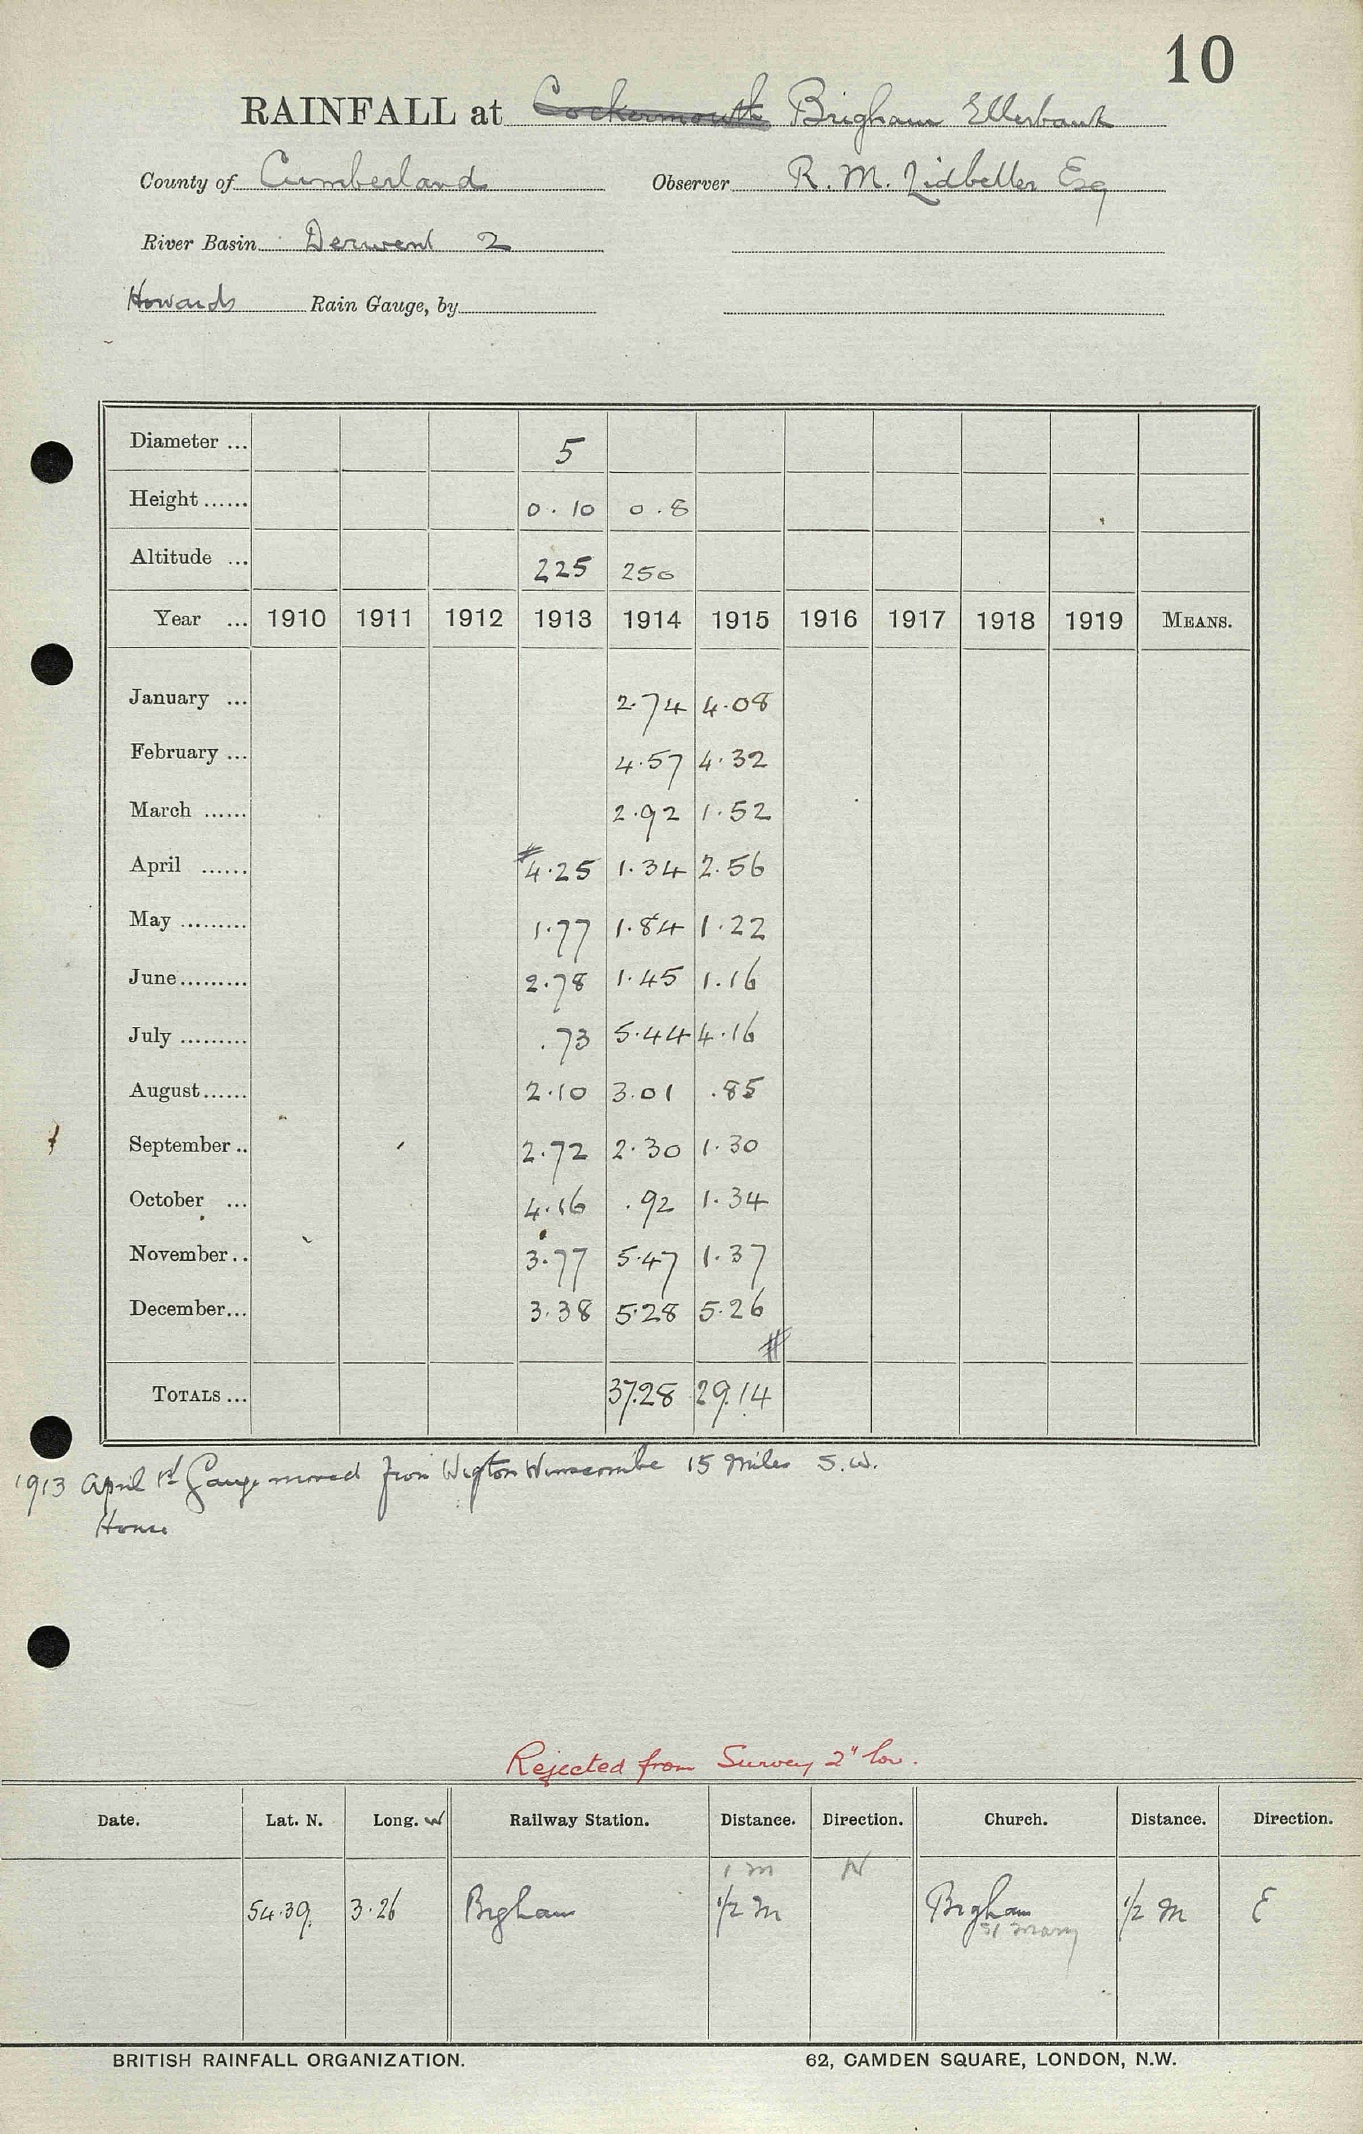 10
RAINFALL at Cockermouth Brigham Ellerbank
County of Cumberland Observer R. M. Lidbetter Esq
River Basin Derwent 2
Howards Rain Gauge, by
Diameter ... 5
Height ...... 0.10 0.8
Altitude ... 225 250
Year ... 1910 1911 1912 1913 1914 1915 1916 1917 1918 1919 MEANS.
January ... 2.74 4.08
February ... 4.57 4.32
March ...... 2.92 1.52
April ...... #4.25 1.34 2.56
May ......... 1.77 1.84 1.22
June ......... 2.78 1.45 1.16
July ......... .73 5.44 4.16
August ...... 2.10 3.01 .85
September .. 2.72 2.30 1.30
October ... 4.16 .92 1.34
November .. 3.77 5.47 1.37
December ... 3.38 5.28 5.26
#
TOTALS ... 37.28 29.14
1913 April 1st Gauge moved from Wigton Winscombe 15 miles S.W.
House
Rejected from Survey 2" low.
Date. Lat. N. Long. W Railway Station. Distance. Direction. Church. Distance. Direction.
1 m N
54.39 3.26 Brgham 1/2 m Brgham 1/2 m E
St Mary
BRITISH RAINFALL ORGANIZATION. 62, CAMDEN SQUARE, LONDON, N.W.